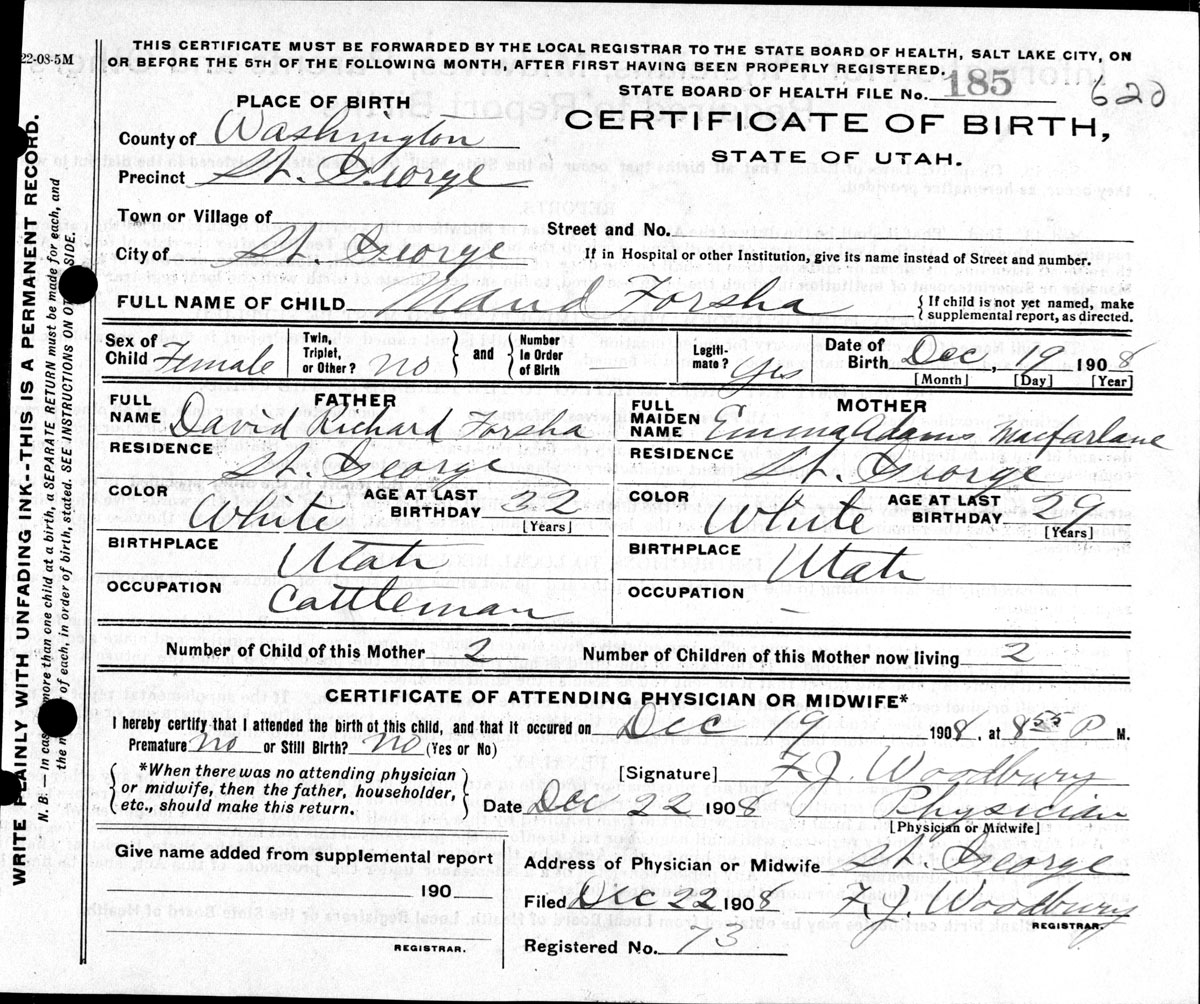 22-08-5M
THIS CERTIFICATE MUST BE FORWARDED BY THE LOCAL REGISTRAR TO THE STATE BOARD OF HEALTH, SALT LAKE CITY, ON
OR BEFORE THE 5TH OF THE FOLLOWING MONTH, AFTER FIRST HAVING BEEN PROPERLY REGISTERED.
STATE BOARD OF HEALTH FILE No. 185 620
PLACE OF BIRTH
CERTIFICATE OF BIRTH,
STATE OF UTAH.
County of Washington
Precinct St. George
Town or Village of
Street and No.
City of St. George
If in Hospital or other Institution, give its name instead of Street and number.
FULL NAME OF CHILD Maud Forsha
{If child is not yet named, make
supplemental report, as directed.
Sex of Child Female
Twin, Triplet, or Other? No
and
Number in Order of Birth
Legiti-mate? Yes
Date of Birth Dec, 19 1908
[Month] [Day] [Year]
FATHER
FULL NAME David Richard Forsha
RESIDENCE St. George
COLOR White AGE AT LAST BIRTHDAY 32
[Years]
BIRTHPLACE Utah
OCCUPATION Cattleman
MOTHER
FULL MAIDEN NAME Emma Adams Macfarlane
RESIDENCE St. George
COLOR White AGE AT LAST BIRTHDAY 29
[Years]
BIRTHPLACE Utah
OCCUPATION –
Number of Child of this Mother 2 Number of Children of this Mother now living 2
CERTIFICATE OF ATTENDING PHYSICIAN OR MIDWIFE*
I hereby certify that I attended the birth of this child, and that it occured on Dec 19 1908, at 8 55 P M.
Premature No or Still Birth? No (Yes or No)
*When there was no attending physician
or midwife, then the father, householder,
etc., should make this return.
[Signature] F.J. Woodbury
Date Dec 22 1908 Physician
[Physician or Midwife]
Give name added from supplemental report
190
REGISTRAR.
Address of Physician or Midwife St. George
Filed Dec 22 1908 F.J. Woodbury
REGISTRAR.
Registered No. 73
WRITE PLAINLY WITH UNFADING INK--THIS IS A PERMANENT RECORD.
N. B.—In case more than one child at a birth, a SEPARATE RETURN must be made for each, and
the n of each, in order of birth, stated. SEE INSTRUCTIONS ON OT SIDE.